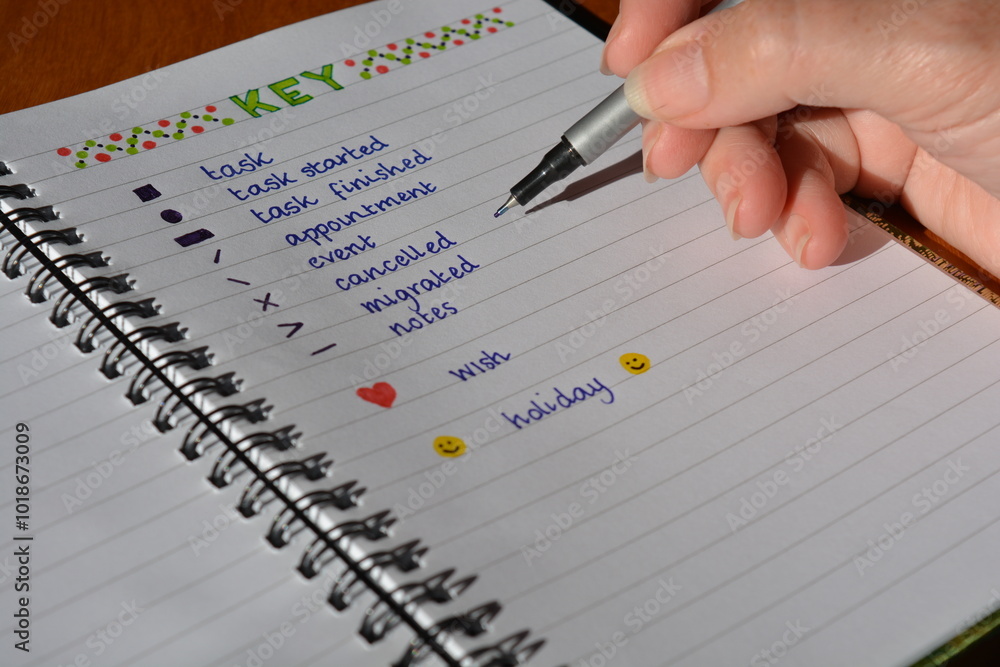 KEY
task
task started
task finished
appointment
event
cancelled
migrated
notes
wish
holiday
Adobe Stock | 1018673009